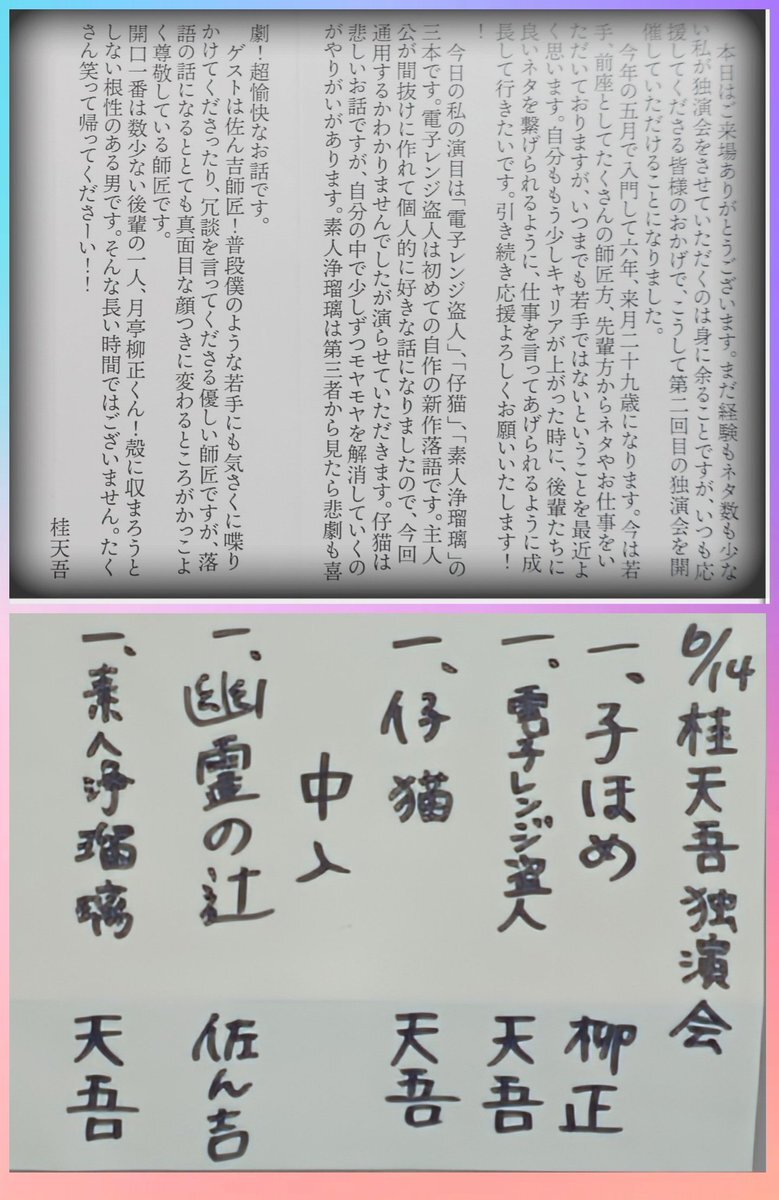 本日はご来場ありがとうございます。まだ経験もネタ数も少な
い私が独演会をさせていただくのは身に余ることですが、いつも応
援してくださる皆様のおかげで、こうして第二回目の独演会を開
催していただけることになりました。
今年の五月で入門して六年、来月二十九歳になります。今は若
手、前座としてたくさんの師匠方、先輩方からネタやお仕事をい
ただいておりますが、いつまでも若手ではないということを最近よ
く思います。自分ももう少しキャリアが上がった時に、後輩たちに
良いネタを繋げられるように、仕事を言ってあげられるように成
長して行きたいです。引き続き応援よろしくお願いいたします!
!
今日の私の演目は「電子レンジ盗人」、「仔猫」、「素人浄瑠璃」の
三本です。電子レンジ盗人は初めての自作の新作落語です。主人
公が間抜けに作れて個人的に好きな話になりましたので、今回
通用するかわかりませんでしたが演らせていただきます。仔猫は
悲しいお話ですが、自分の中で少しずつモヤモヤを解消していくの
がやりがいがあります。素人浄瑠璃は第三者から見たら悲劇も喜
劇!超愉快なお話です。
ゲストは佐ん吉師匠!普段僕のような若手にも気さくに喋り
かけてくださったり、冗談を言ってくださる優しい師匠ですが、落
語の話になるととても真面目な顔つきに変わるところがかっこよ
く尊敬している師匠です。
開口一番は数少ない後輩の一人、月亭柳正くん!殻に収まろうと
しない根性のある男です。そんな長い時間ではございません。たく
さん笑って帰ってくださーい!!
桂天吾
6/14 桂天吾独演会
一、子ほめ 柳正
一。電子レンジ盗人 天吾
一、仔猫 天吾
中入
一、幽霊の辻 佐ん吉
一、素人浄瑠璃 天吾